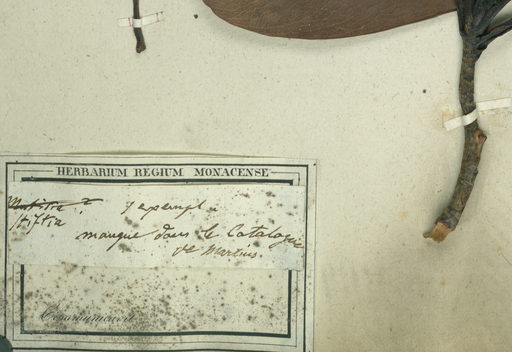 HERBARIUM REGIUM MONACENSE
Mutisia? 1 exempl.
stiftia
manque dans le Catalogue
de Martius.
Communicavit